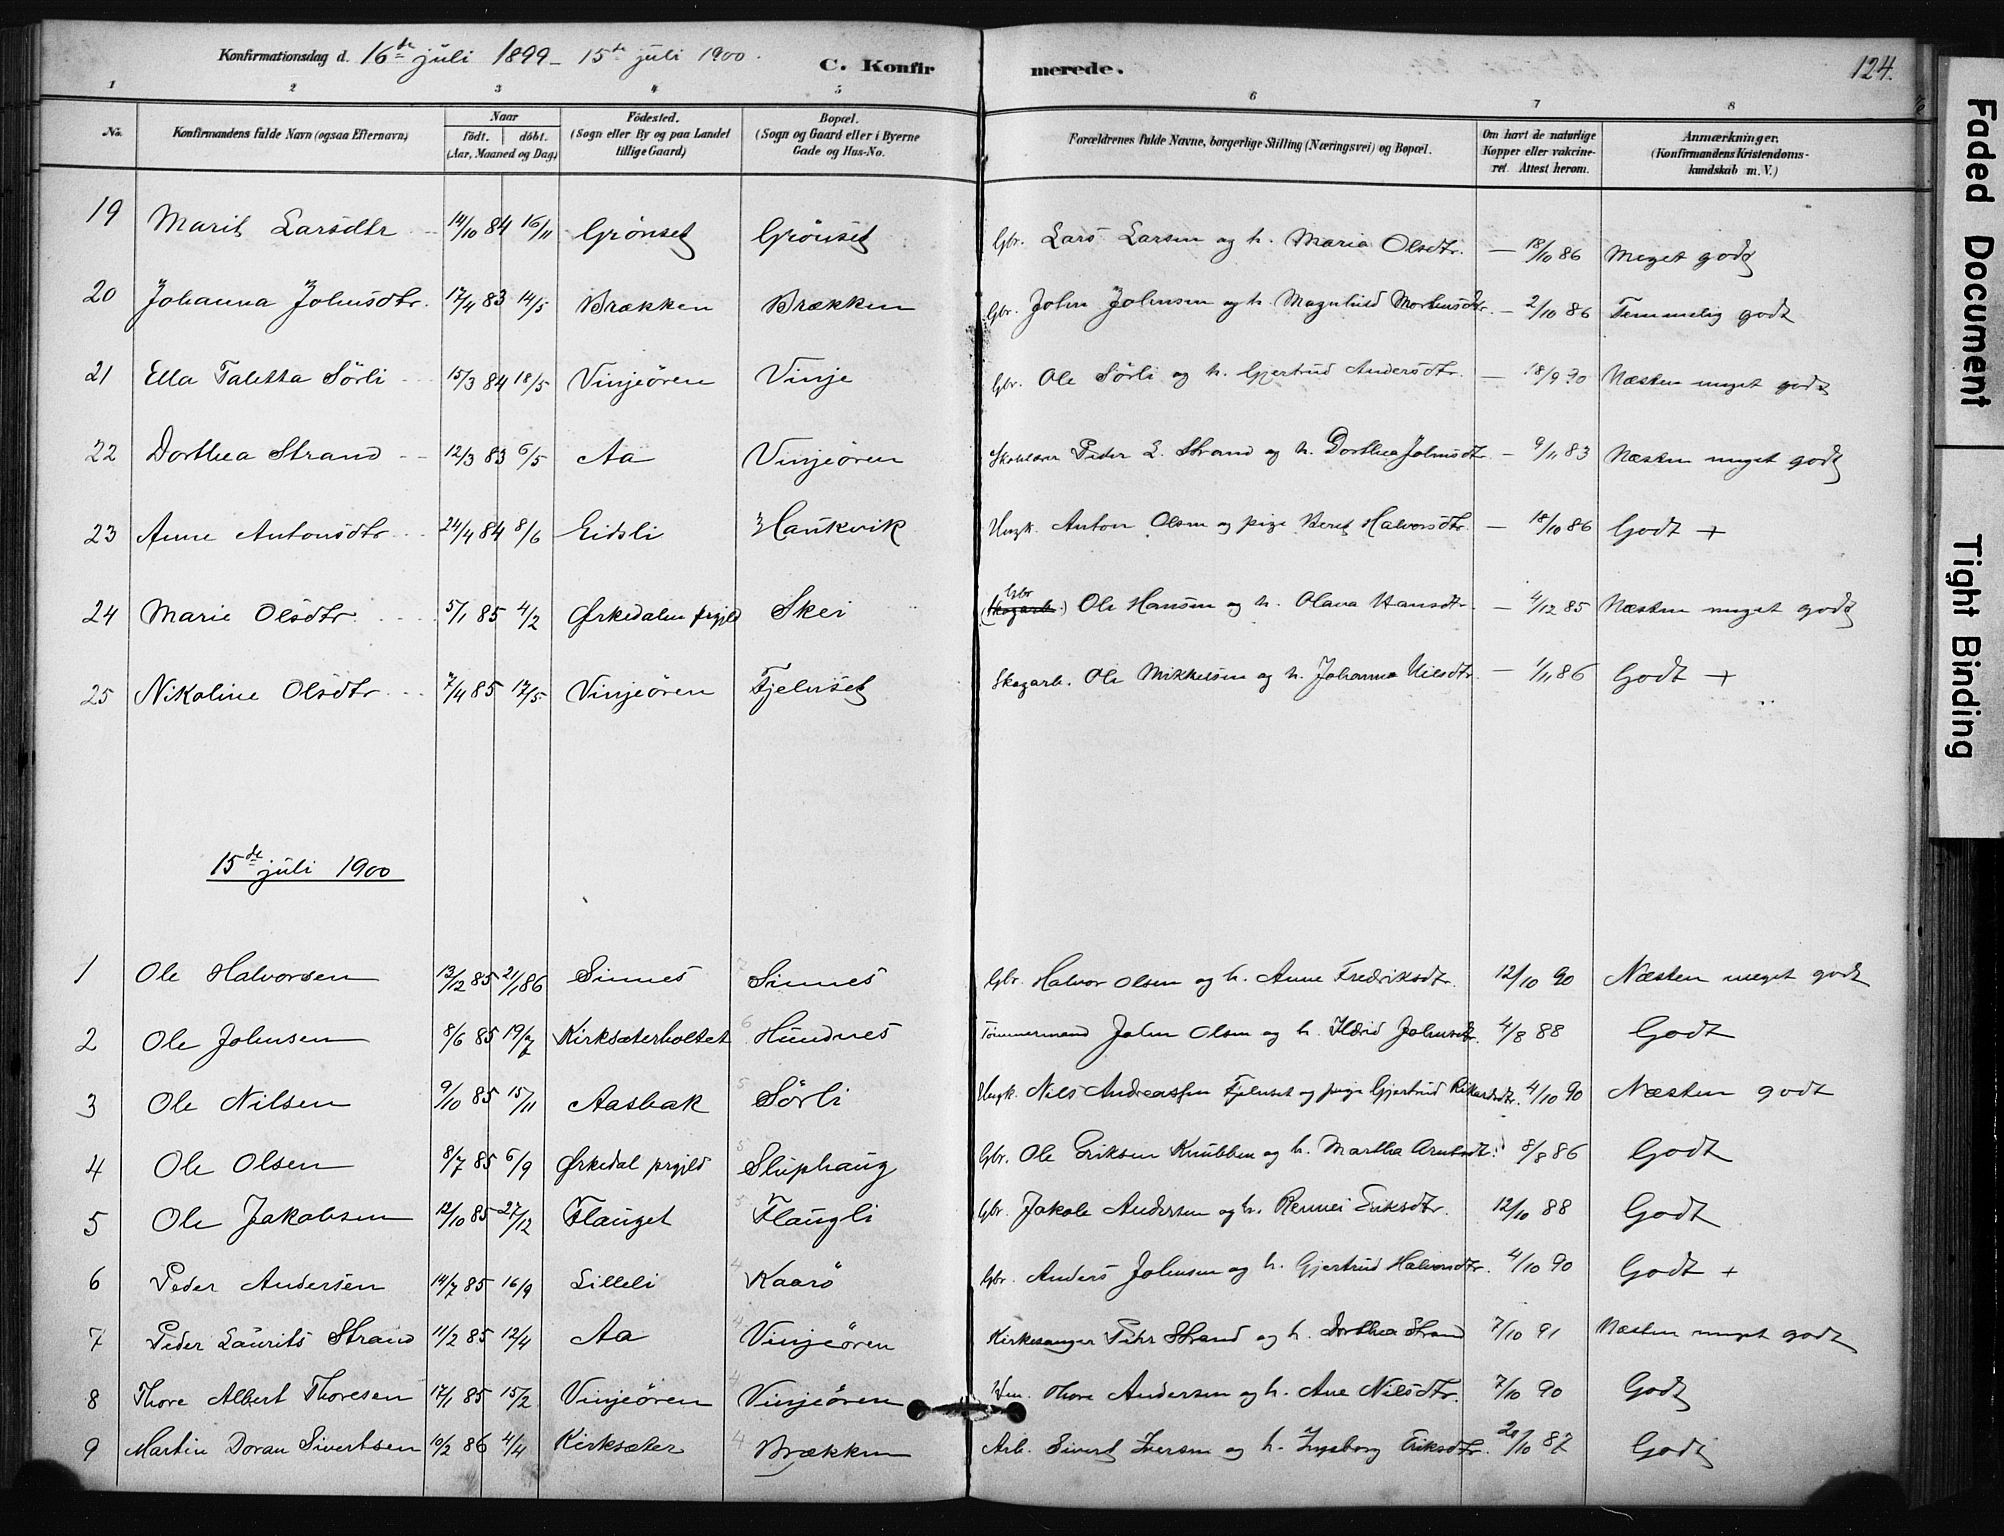 Konfirmationsdag d. 16de juli 1899 – 15de juli 1900. C. Konfirmerede. 124.
1 2 3 4 5 6 7 8
No. Konfirmandens fulde Navn (ogsaa Efternavn) Naar födt. döbt. (Aar, Maaned og Dag) Födested. (Sogn eller By og paa Landet tillige Gaard) Bopæl. (Sogn og Gaard eller i Byerne Gade og Hus-No. Forældrenes fulde Navne, borgerlige Stilling (Næringsvei) og Bopæl. Om havt de naturlige Kopper eller vakcineret. Attest herom. Anmærkninger. (Konfirmandens Kristendomskundskab m. V.)
19 Marit Larsdtr 14/10 84 16/11 Grönset Grönset Gbr. Lars Larsen og h. Maria Olsdtr. – 18/10 86 Meget godt
20 Johanna Johnsdtr. 17/4 83 14/5 Brækken Brækken Gbr. John Johnsen og h. Magnhild Mortensdtr. – 2/10 86 Temmelig godt
21 Ella Taletta Sörli 15/3 84 18/5 Vinjeören Vinje Gbr. Ole Sörli og h. Gjertrud Andersdtr. – 18/9 90 Næsten meget godt
22 Dorthea Strand 12/3 83 6/5 Aa Vinjeören Skolelærer Peder L. Strand og h. Dorthea Johnsdtr – 9/11 83 Næsten meget godt
23 Anne Antonsdtr 24/4 84 8/6 Eidsli Haukvik Ungk. Anton Olsen og pige Beret Halvorsdtr. – 18/10 86 Godt +
24 Marie Olsdtr 5/1 85 4/2 Ørkedalen prgjld Skei Gbr (Skogarb.) Ole Hansen og h. Olava Hansdtr – 4/12 85 Næsten meget godt
25 Nikoline Olsdtr 7/4 85 17/5 Vinjeören Fjelnset Skogarb. Ole Mikkelsen og h. Johanna Nilsdtr. – 1/11 86 Godt +
15de juli 1900
1 Ole Halvorsen 13/12 85 21/1 86 Sinnes Sinnes Gbr. Halvor Olsen og h. Anne Fredriksdtr. 12/10 90 Næsten meget godt
2 Ole Johnsen 8/6 85 19/7 Kirksæterholtet 6 Hundnes Tömmermand John Olsen og h. Ildrid Johnsdtr. 4/8 88 Godt
3 Ole Nilsen 9/10 85 15/11 Aasbak 5 Sörli Ungk. Nils Andreassen Fjelnset og pige Gjertrud Rikardsdtr. 4/10 90 Næsten godt
4 Ole Olsen 8/7 85 6/9 Ørkedal prgjld 5 Sluphaug Gbr. Ole Eriksen Knubben og h. Martha Arntsdt. 8/8 86 Godt
5 Ole Jakobsen 12/10 85 27/12 Flauget 5 Flaugli Gbr. Jakob Andersen og h. Rennei Eriksdtr. 12/10 88 Godt
6 Peder Andersen 14/7 85 16/9 Lilleli 4 Kaarö Gbr. Anders Johnsen og h. Gjertrud Halvorsdtr. 4/10 90 Godt +
7 Peder Laurits Strand 11/2 85 12/4 Aa 4 Vinjeören Kirkesanger Peder Strand og h. Dorthea Strand 7/10 91 Næsten meget godt
8 Thore Albert Thoresen 17/1 85 15/2 Vinjeören 4 Vinjeören Thore Andersen og h. Ane Nilsdtr. 7/10 90 Godt
9 Martin Doran Sivertsen 10/2 86 4/4 Kirksæter 4 Brækken Arb. Sivert Iversen og h. Ingeborg Eriksdtr. 20/10 87 Godt
Faded Document
Tight Binding